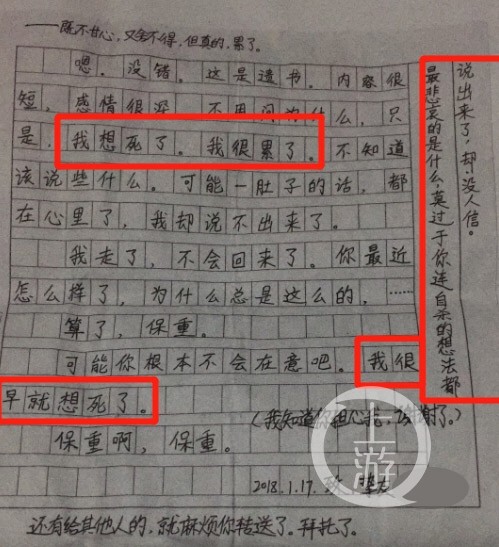 ——既不甘心，又舍不得，但真的，累了。
嗯。没错。这是遗书。内容很
短，感情很深，不思问为什么，只
是，我想死了。我很累了。不知道
该说些什么。可能一肚子的话，都
在心里了，我却说不出来了。
我走了，不会回来了。你最近
怎么样了，为什么总是这么的，……
算了，保重。
可能你根本不会在意吧。我很
早就想死了。
（我知道你担心我，谢谢了。）
保重啊，保重。
2018.1.17.
还有给其他人的，就麻烦你转送了。拜托了。
最悲哀的是什么，莫过于你连自杀的想法都
说出来了，却没人信。
上游